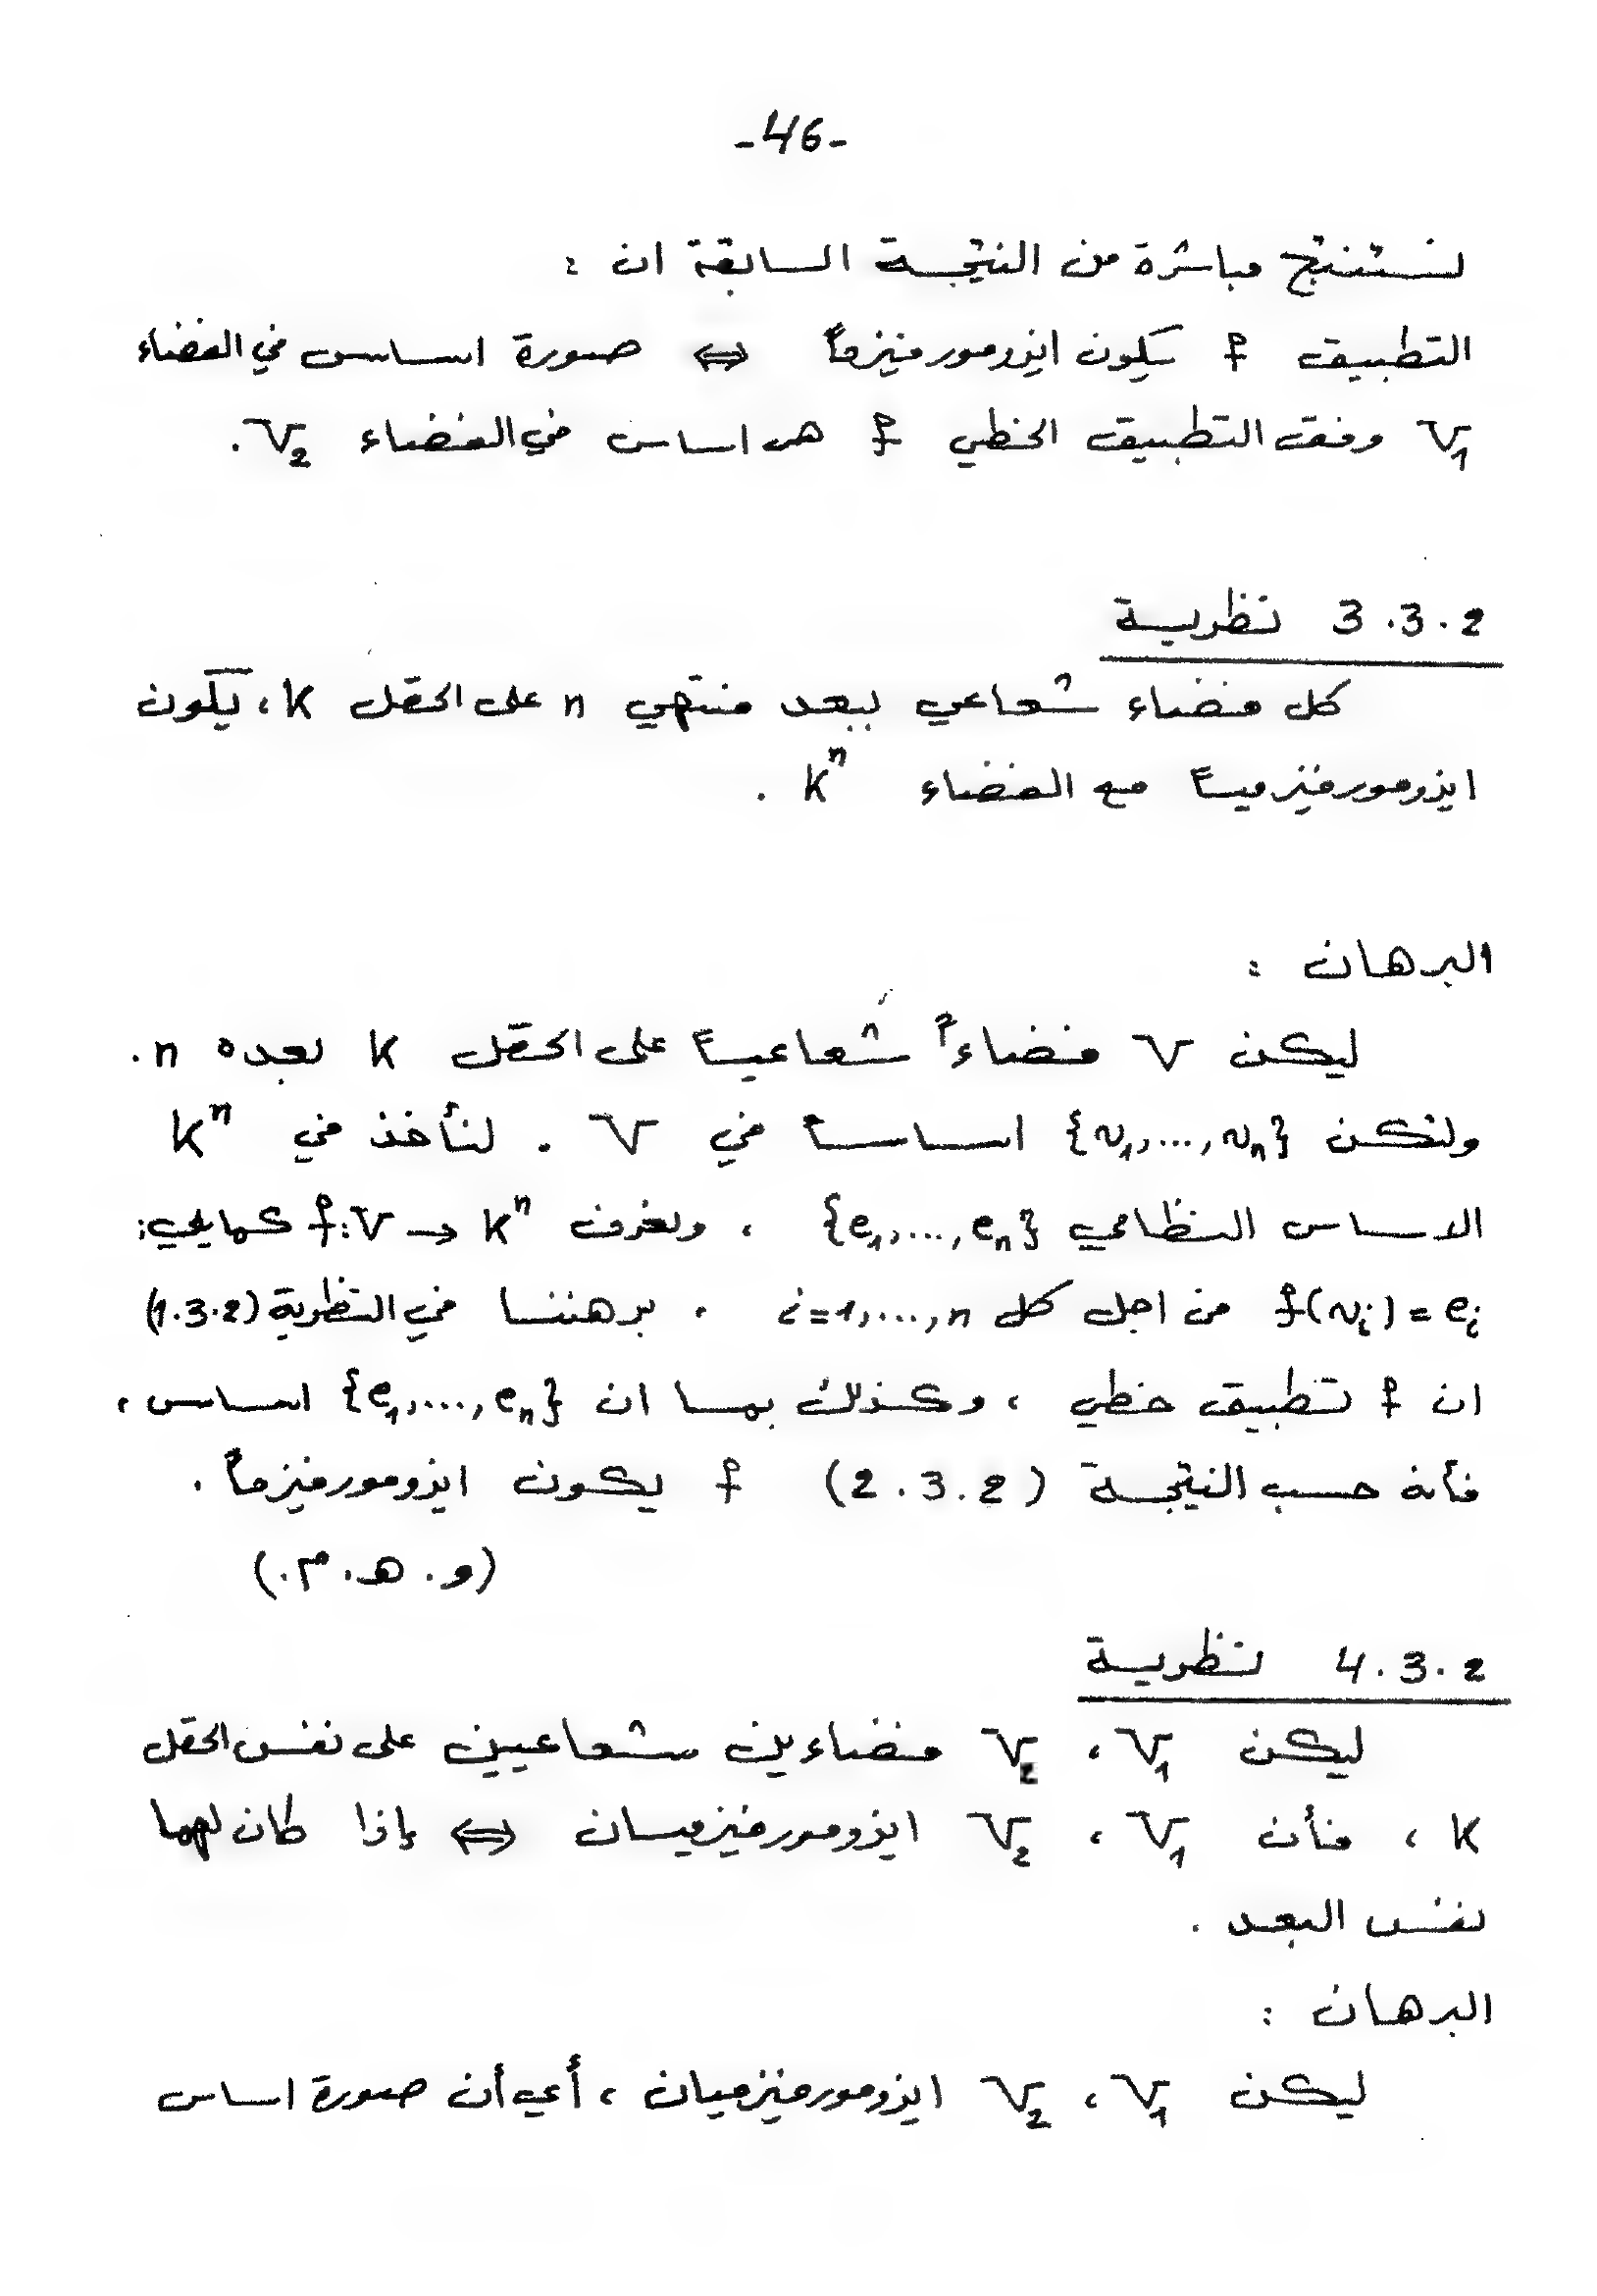 -46-
نستنتج مباشرة من النتيجة السابقة ان :
التطبيق f يكون ايزومورفيزماً ⇔ صورة اساس في الفضاء
V₁ وفق التطبيق الخطي f هي اساس في الفضاء V₂ .
3.3.2 نظرية
كل فضاء شعاعي ببعد منتهي n على الحقل K ، يكون
ايزومورفيزمياً مع الفضاء Kⁿ .
البرهان :
ليكن V فضاءً شعاعياً على الحقل K بعده n .
ولتكن {v₁,...,vₙ} اساساً في V . لنأخذ في Kⁿ
الاساس النظامي {e₁,...,eₙ} ، ولنعرف f:V → Kⁿ كمايلي:
f(vᵢ) = eᵢ من اجل كل i=1,...,n . برهننا في النظرية (1.3.2)
ان f تطبيق خطي ، وكذلك بما ان {e₁,...,eₙ} اساس ،
فأنه حسب النتيجة (2.3.2) f يكون ايزومورفيزماً .
(و . هـ . م .)
4.3.2 نظرية
ليكن V₁ ، V₂ فضاءين شعاعيين على نفس الحقل
K ، فأن V₁ ، V₂ ايزومورفيزميان ⇔ إذا كان لهما
نفس البعد .
البرهان :
ليكن V₁ ، V₂ ايزومورفيزميان ، أي أن صورة اساس